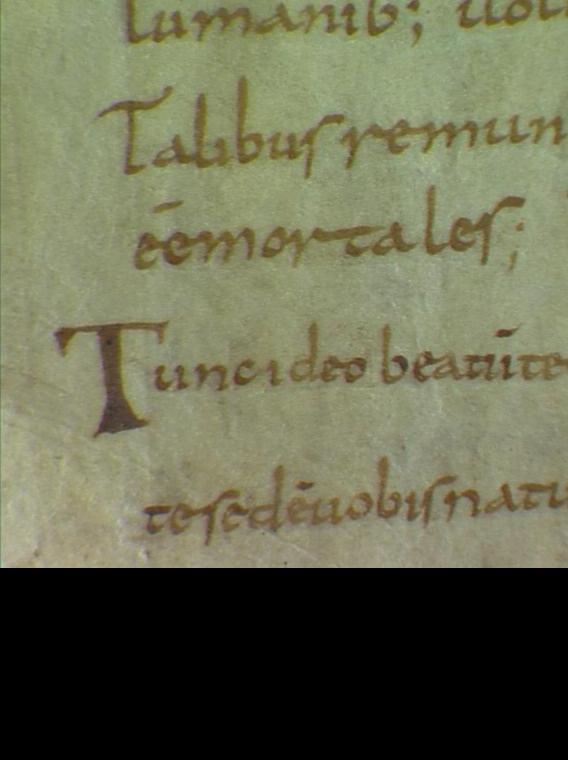 lumanib;
Talibus remun
ēemortales;
Tuncideo beatūte
tesedēuobisnatu